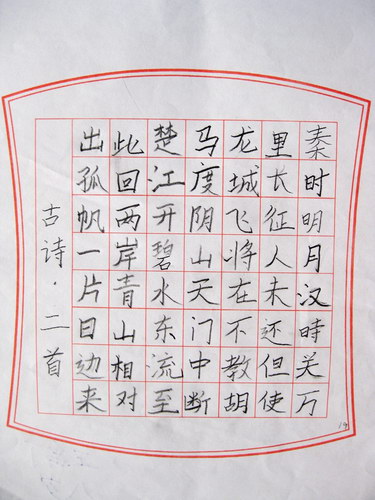 秦时明月汉時关万
里长征人未还但使
龙城飞将在不教胡
马度阴山天门中断
楚江开碧水东流至
此回两岸青山相对
出孤帆一片日边来
古诗·二首